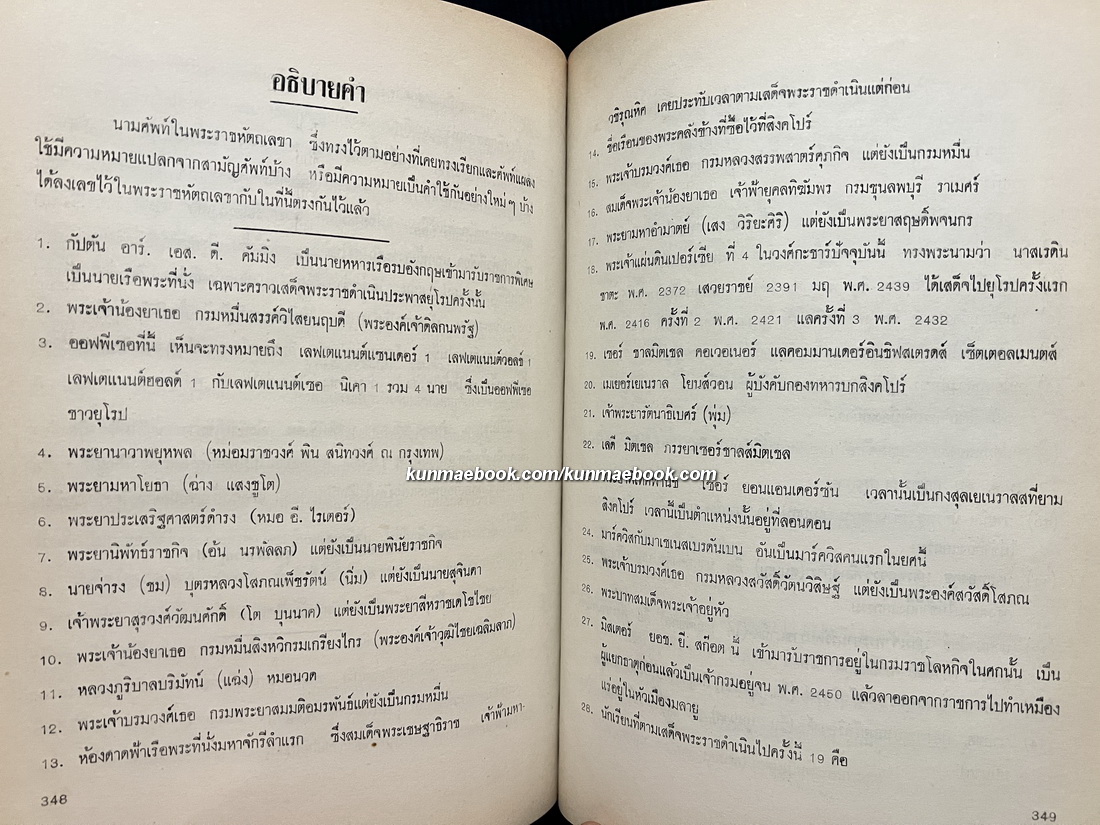 อธิบายคำ
นามศัพท์ในพระราชหัตถเลขา ซึ่งทรงไว้ตามอย่างที่เคยทรงเรียกและศัพท์แผลง
ใช้มีความหมายแปลกจากสามัญศัพท์บ้าง หรือมีความหมายเป็นคำใช้กันอย่างใหม่ ๆ บ้าง
ได้ลงเลขไว้ในพระราชหัตถเลขากับในที่นี้ตรงกันไว้แล้ว
1. กัปตัน อาร์. เอส. ดี. คัมมิง เป็นนายทหารเรือรบอังกฤษเข้ามารับราชการพิเศษ
เป็นนายเรือพระที่นั่ง เฉพาะคราวเสด็จพระราชดำเนินประพาสยุโรปครั้งนั้น
2. พระเจ้าน้องยาเธอ กรมหมื่นสรรค์วิไสยนฤบดี (พระองค์เจ้าดิลกนพรัฐ)
3. ออฟฟีเซอที่นี้ เห็นจะทรงหมายถึง เลฟเตแนนต์แซนเดอร์ 1 เลฟเตแนนต์วอลข์ 1
เลฟเตแนนต์ฮอลด์ 1 กับเลฟเตแนนต์เซอ นิเคา 1 รวม 4 นาย ซึ่งเป็นออฟฟีเซอ
ชาวยุโรป
4. พระยานาวาพยุหพล (หม่อมราชวงศ์ พิน สนิทวงศ์ ณ กรุงเทพ)
5. พระยามหาโยธา (ฉ่าง แสงชูโต)
6. พระยาประเสริฐศาสตร์ดำรง (หมอ อี. ไรเตอร์)
7. พระยานิพัทธ์ราชกิจ (อ้น นรพัลลภ) แต่ยังเป็นนายพินัยราชกิจ
8. นายจ่ารง (ชม) บุตรหลวงโสภณเพ็ชรัตน์ (นิ่ม) แต่ยังเป็นนายสุจินดา
9. เจ้าพระยาสุรวงศ์วัฒนศักดิ์ (โต บุนนาค) แต่ยังเป็นพระยาสีหราชเดโชไชย
10. พระเจ้าน้องยาเธอ กรมหมื่นสิงหวิกรมเกรียงไกร (พระองค์เจ้าวุฒิไชยเฉลิมลาภ)
11. หลวงภูริบาลบริมัทน์ (แฉ่ง) หมอนวด
12. พระเจ้าบรมวงศ์เธอ กรมพระยาสมมติอมรพันธ์แต่ยังเป็นกรมหมื่น
13. ห้องดาดฟ้าเรือพระที่นั่งมหาจักรีลำแรก ซึ่งสมเด็จพระเชษฐาธิราช เจ้าฟ้ามหา-
348
วชิรุณหิศ เคยประทับเวลาตามเสด็จพระราชดำเนินแต่ก่อน
14. ชื่อเรือนของพระคลังข้างที่ซื้อไว้ที่สิงคโปร์
15. พระเจ้าบรมวงศ์เธอ กรมหลวงสรรพสาตร์ศุภกิจ แต่ยังเป็นกรมหมื่น
16. สมเด็จพระเจ้าน้องยาเธอ เจ้าฟ้ายุคลทิฆัมพร กรมขุนลพบุรี ราเมศร์
17. พระยามหาอำมาตย์ (เสง วิริยะศิริ) แต่ยังเป็นพระยาสฤษดิ์พจนกร
18. พระเจ้าแผ่นดินเปอร์เซีย ที่ 4 ในวงศ์กะชาร์ปัจจุบันนี้ ทรงพระนามว่า นาสเรดิน
ชาตะ พ.ศ. 2372 เสวยราชย์ 2391 มฤ พ.ศ. 2439 ได้เสด็จไปยุโรปครั้งแรก
พ.ศ. 2416 ครั้งที่ 2 พ.ศ. 2421 แลครั้งที่ 3 พ.ศ. 2432
19. เซอร์ ชาลมิตเชล คอเวอเนอร์ แลคอมมานเดอร์อินชิฟสเตรดส์ เซ็ตเตอลเมนตส์
20. เมเยอร์เยเนราล โยนส์วอน ผู้บังคับกองทหารบกสิงคโปร์
21. เจ้าพระยารัตนาธิเบศร์ (พุ่ม)
22. เลดี มิตเชล ภรรยาเซอร์ชาลส์มิตเชล
kunmaebook.com/kunmaebook.com
เซอร์ ยอนแอนเดอร์ซัน เวลานั้นเป็นกงสุลเยเนราลสที่ยาม
สิงคโปร์ เวลานี้เป็นตำแหน่งนั้นอยู่ที่ลอนดอน
24. มาร์ควิสกับมาเชเนสเบรดันเบน อันเป็นมาร์ควิสคนแรกในยศนี้
25. พระเจ้าบรมวงศ์เธอ กรมหลวงสวัสดิ์วัตนวิสิษฐ์ แต่ยังเป็นพระองค์สวัสดิ์โสภณ
26. พระบาทสมเด็จพระเจ้าอยู่หัว
27. มิสเตอร์ ยอช. ยี. สก๊อต นี้ เข้ามารับราชการอยู่ในกรมราชโลหกิจในศกนั้น เป็น
ผู้แยกธาตุก่อนแล้วเป็นเจ้ากรมอยู่จน พ.ศ. 2450 แล้วลาออกจากราชการไปทำเหมือง
แร่อยู่ในหัวเมืองมลายู
28. นักเรียนที่ตามเสด็จพระราชดำเนินไปครั้งนี้ 19 คือ
349